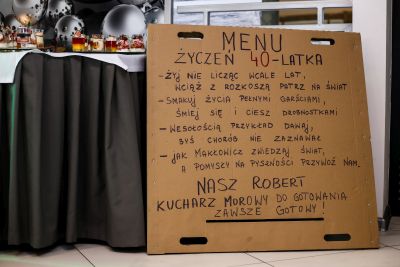 MENU
ŻYCZEŃ 40-LATKA
- ŻYJ NIE LICZĄC WCALE LAT,
WCIĄŻ Z ROZKOSZĄ PATRZ NA ŚWIAT
- SMAKUJ ŻYCIA PEŁNYMI GARŚCIAMI,
ŚMIEJ SIĘ I CIESZ DROBNOSTKAMI
- WESOŁOŚCIĄ PRZYKŁAD DAWAJ,
BYŚ CHORÓB NIE ZAZNAWAŁ
- JAK MAKŁOWICZ ZWIEDZAJ ŚWIAT,
A POMYSŁY NA PYSZNOŚCI PRZYWOŹ NAM.
NASZ ROBERT
KUCHARZ MOROWY DO GOTOWANIA
ZAWSZE GOTOWY!